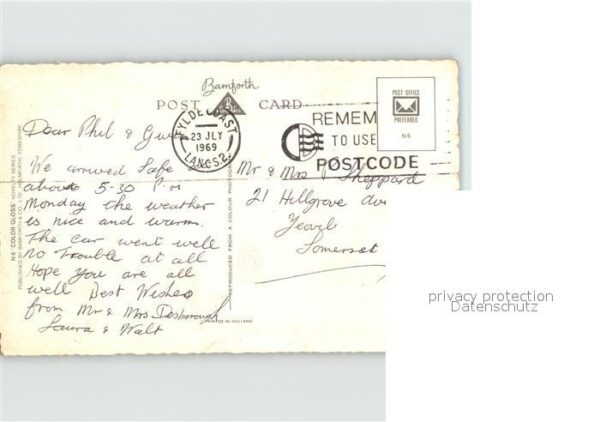 Bamforth
POST CARD
B
FYLDE COAST
23 JLY
1969
LANCS 2.
REMEMBER
TO USE
POSTCODE
POST OFFICE
PREFERRED
N 6
Dear Phil &
We arrived Safe
about 5-30 P.m
Monday the weather
is nice and warm.
The Car went well
no Trouble at all
Hope You are all
well Best Wishes
from Mr & Mrs Desborough
Laura & Walt
N6 "COLOR GLOSS" NOVELTY SERIES
PUBLISHED BY BAMFORTH & CO., LTD., HOLMFIRTH, YORKSHIRE
REPRODUCED FROM A COLOUR PHOTOGRAPH
PRINTED IN HOLLAND
Mr & Mrs Sheppard
21 Hillgrove
Yeovil
Somerset
privacy protection
Datenschutz